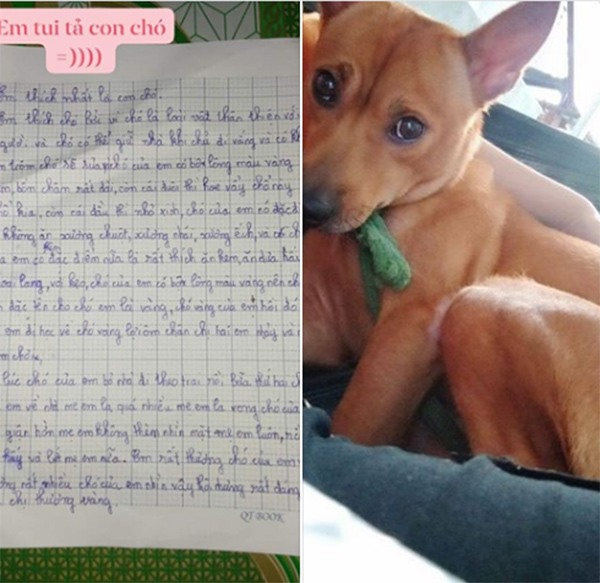 Em tui tả con chó
=))))
Em thích nhất là con chó.
thích chó bởi vì chó là loài vật thân thiện với
người. và chó có thể giữ nhà khi chủ đi vắng và có
trộm chó sẽ sủa chó của em có bộ lông màu vàng
bốn chân rất dài, còn cái đuôi thì hoe vẫy chỗ này
chỗ kia, còn cái đầu thì nhỏ xinh, chó của em có đặc đ
không ăn xương chuột, xương nhái, xương ếch, và có
em có đặc điểm nữa là rất thích ăn kem, ăn dưa
oai lang, vỏ kẹo, chó của em có bộ lông màu vàng nên
đặc tên cho chó em là vàng, chó vàng của em
em đi học về chó vàng lại ôm chân chị hai em nhảy và
lúc chó của em bỏ nhà đi theo trai rồi bữa thứ hai
em về nhà mẹ em la quá nhiều mẹ em la xong chó của
giận hờn mẹ em không thèm nhìn mặt mẹ em luôn,
và mẹ em nữa. Em rất thương chó của em
rất nhiều chó của em nhìn vậy
chị thương vàng.
QT-BOOK